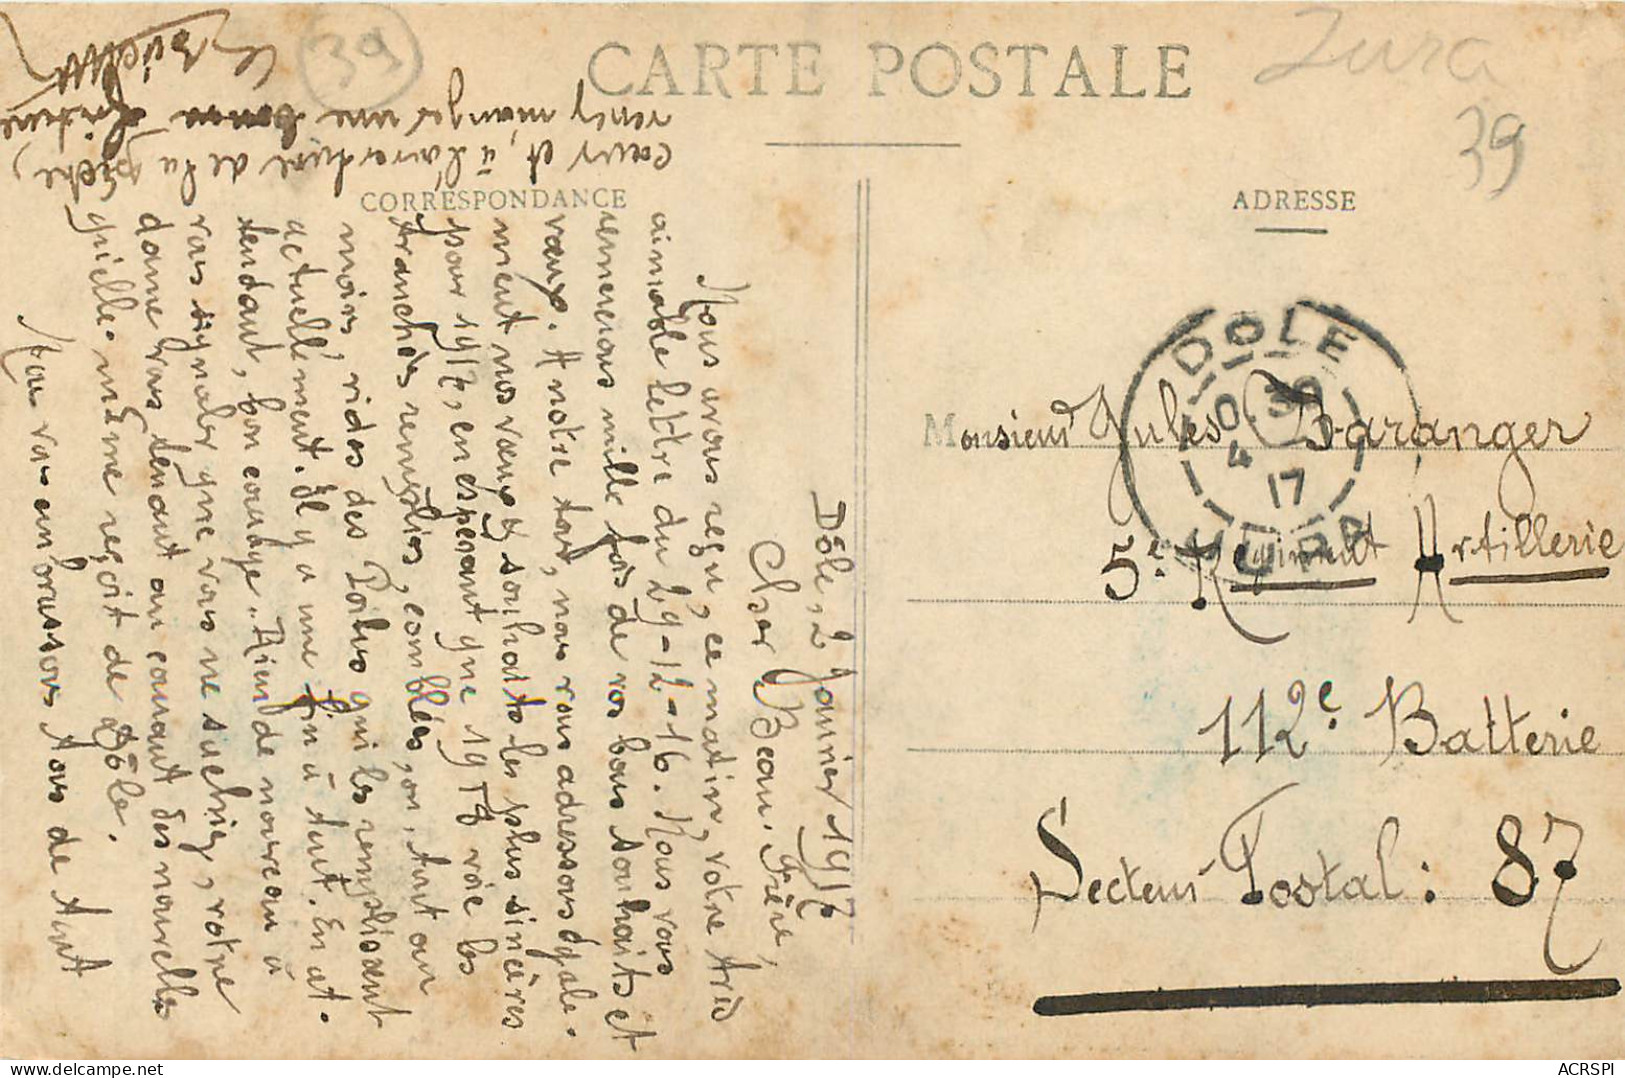 CARTE POSTALE
CORRESPONDANCE
ADRESSE
39
Jura
39
Dôle, 2 Janvier 1917
Cher Beau-Frère,
Nous avons reçu, ce matin, votre très
aimable lettre du 29-12-16. Nous vous
remercions mille fois de vos bons souhaits et
vœux. A notre tour, nous vous adressons égale-
ment nos vœux & souhaits les plus sincères
pour 1917, en espérant que 1917 voie les
tranchées remplies, comblées, ou, tout au
moins, vides des Poilus qui les remplissent
actuellement. Il y a une fin à tout. En at-
tendant, bon courage. Rien de nouveau à
vous signaler que vous ne sachiez, votre
dame vous tenant au courant des nouvelles
qu'elle-même reçoit de Dôle.
Nous vous embrassons tous de tout
cœur et, à l'ouverture de la pêche,
venez manger une bonne friture
DOLE
JURA
0 30
4
17
Monsieur Jules Baranger
5e Régiment Artillerie
112e Batterie
Secteur Postal: 87
ACRSPI